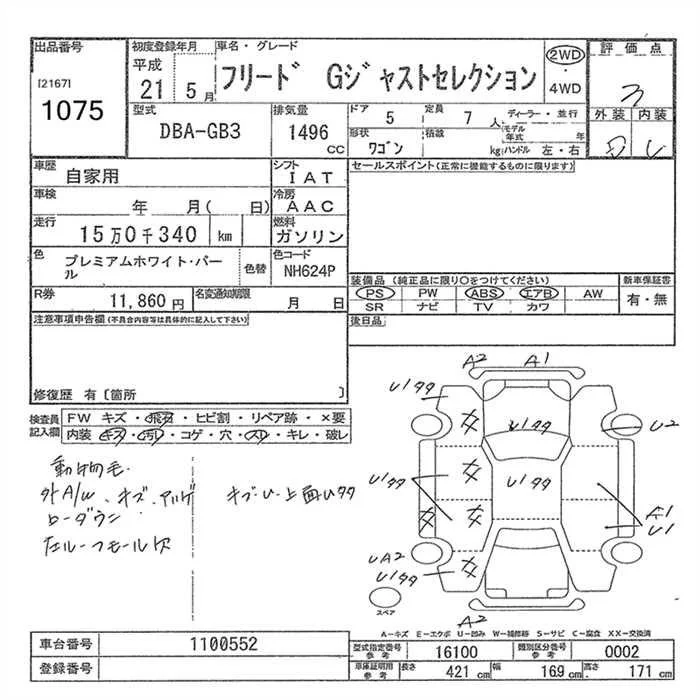 出品番号
[2167]
1075
初度登録年月
平成
21年5月
車名・グレード
フリード Gジャストセレクション
2WD
・
4WD
評価点
3
外装 内装
型式
DBA-GB3
排気量
1496
CC
ドア 5
定員 7 人
ディーラー・並行
モデル年式 年
形状 ワゴン
積載 kg
ハンドル 左・右
車歴
自家用
シフト
IAT
車検
年 月( 日)
冷房
AAC
走行
15万0千340 km
燃料
ガソリン
色
プレミアムホワイト・パール
色替
色コード
NH624P
R券
11,860円
名変通知期限
月 日
セールスポイント(正常に機能するものに限ります)
装備品(純正品に限り○をつけてください)
新車保証書
PS PW ABS エアB AW
有・無
SR ナビ TV カワ
後日品
注意事項申告欄(不具合内容等は具体的に記入して下さい)
修復歴 有〔箇所 〕
検査員記入欄
FW キズ・飛石・ヒビ割・リペア跡・×要
内装・キズ・汚レ・コゲ・穴・スレ・キレ・破レ
動物毛
外A/W、キズ、
ローダウン
左ルーフモール欠
A2
A1
U2
A1
U1
UA2
A2
スペア
A−キズ E−エクボ U−凹み W−補修跡 S−サビ C−腐食 XX−交換済
車台番号
1100552
登録番号
型式指定番号
参考
16100
類別区分番号
参考
0002
車庫証明用
参考
長さ 421 cm
幅 169 cm
高さ 171 cm